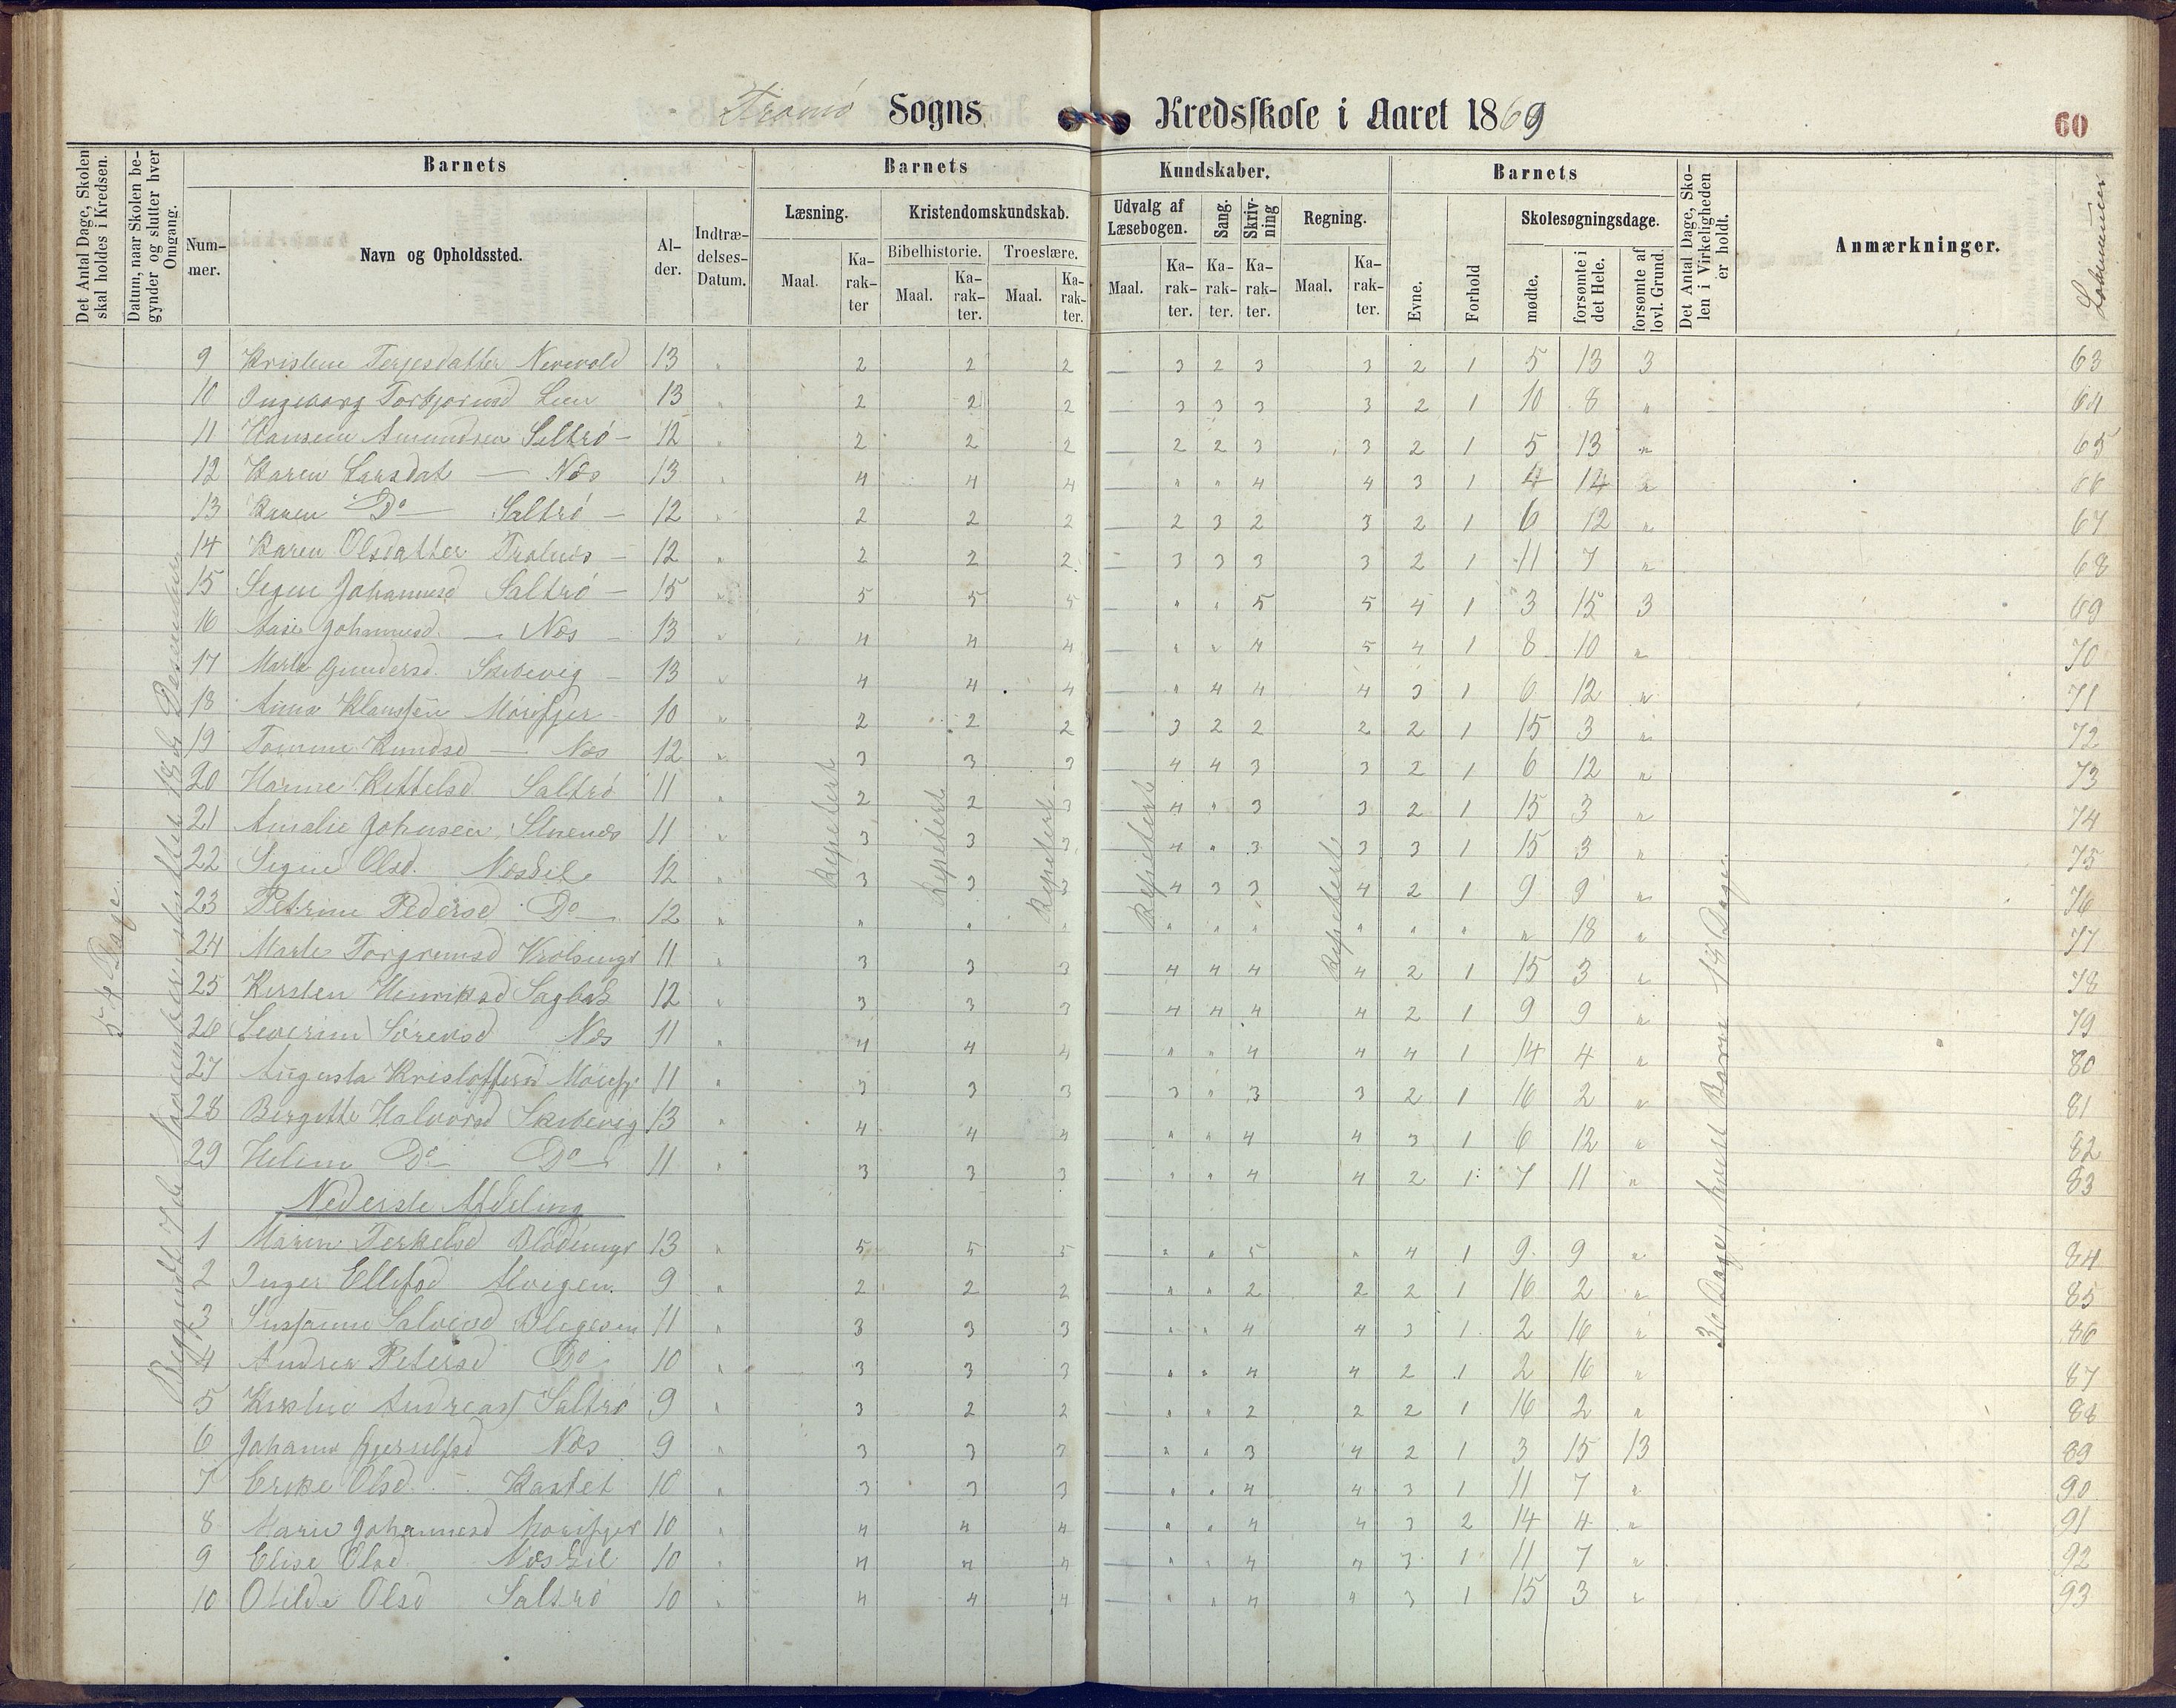 Tromö Sogns Kredsskole i Aaret 1869
60
Det Antal Dage, Skolen skal holdes i Kredsen.
Datum, naar Skolen begynder og slutter hver Omgang.
Barnets
Barnets
Kundskaber.
Barnets
Det Antal Dage, Skolen i Virkeligheden er holdt.
Anmærkninger.
Nummer.
Navn og Opholdssted.
Alder.
Indtrædelses-Datum.
Læsning.
Kristendomskundskab.
Udvalg af Læsebogen.
Sang.
Skrivning
Regning.
Evne.
Forhold
Skolesøgningsdage.
Bibelhistorie.
Troeslære.
Maal. Karakter
Maal. Karakter.
Maal. Karakter.
Maal. Karakter.
Karakter.
Karakter.
Maal. Karakter.
mødte.
forsømte i det Hele.
forsømte af lovl. Grund.
Løbenumer
54 Dage
Repetert
Repetert
Repetert
Repetert
Repetert
36 Dage, hvert Barn 18 Dage.
9 Kristine Terjesdatter 13 " 2 2 2 — 3 2 3 3 2 1 5 13 3 63
10 Ingeborg Torbjørnsd Lien 13 " 2 2 2 — 3 3 3 3 2 1 10 8 " 64
11 Hansine Amundsen Saltrö 12 " 2 2 2 — 2 2 3 3 2 1 5 13 " 65
12 Karen Larsdat — Næs 13 " 4 4 4 — " " 4 4 3 1 4 14 " 66
13 Karen Do Saltrö 12 " 2 2 2 — 2 3 2 3 2 1 6 12 " 67
14 Karen Olsdatter 12 " 2 2 2 — 3 3 3 3 2 1 11 7 " 68
15 Signe Johannesd Saltrö 15 " 5 5 5 — " " 5 5 4 1 3 15 3 69
16 Aase Johannesd. — Næs 13 " 4 4 4 — " " 4 5 4 1 8 10 " 70
17 Marte Gundersd. Skibevig 13 " 4 4 4 — " 4 4 4 3 1 6 12 " 71
18 Anna Klaussen Mörefjer 10 " 2 2 2 — 3 2 2 2 2 1 15 3 " 72
19 Tomine Knudsd — Næs 12 " 3 3 3 — 4 4 3 3 2 1 6 12 " 73
20 Hanne Kittelsd Saltrö 11 " 2 2 3 — 4 " 3 3 2 1 15 3 " 74
21 Amalie Johnsen 11 " 3 3 3 — 4 " 3 3 3 1 15 3 " 75
22 Signe Olsd. Næskil 12 " 3 3 3 — 4 3 3 4 2 1 9 9 " 76
23 Petrine Pedersd Do 12 " " " " " " " " " " " 18 " 77
24 Marte Torgrimsd 11 " 3 3 3 — 4 4 4 4 2 1 15 3 " 78
25 Kirsten Henriksd Sagbæk 12 " 3 3 3 — 4 4 4 4 2 1 9 9 " 79
26 Severine Sörensd Næs 11 " 4 4 4 — " " 4 4 4 1 14 4 " 80
27 Augusta Kristoffersd Mörefj. 11 " 3 3 3 — 3 " 3 3 2 1 16 2 " 81
28 Birgitte Halvorsd Skibevig 13 " 4 4 4 — " " 4 4 3 1 6 12 " 82
29 Heline Do Do 11 " 3 3 3 — " " 4 4 2 1 7 11 " 83
Nederste Afdeling
1 Maren Terkelsd 13 " 5 5 5 — " " 5 " 4 1 9 9 " 84
2 Inger Ellefsd Alvigen. 9 " 2 2 2 — " " 2 2 2 1 16 2 " 85
3 Susanne 11 " 3 3 3 — " " 4 4 3 1 2 16 " 86
4 Andrea Petersd Do 10 " 3 3 3 — " " 4 4 2 1 2 16 " 87
5 Kirstine Andreasd Saltrö 9 " 3 2 2 — " " 2 2 2 1 16 2 " 88
6 Johanne Næs 9 " 3 3 3 — " " 3 4 2 1 3 15 13 89
7 Erike Olsd. Kastet 10 " 3 3 3 — " " 4 4 3 1 11 7 " 90
8 Maren Johannesd Mörefjer 10 " 4 4 4 — " " 4 4 3 2 14 4 " 91
9 Elise Olsd. Næskil 10 " 4 4 4 — " " 4 4 3 1 11 7 " 92
10 Otilde Olsd Saltrö 10 " 4 4 4 — " " 4 " 3 1 15 3 " 93